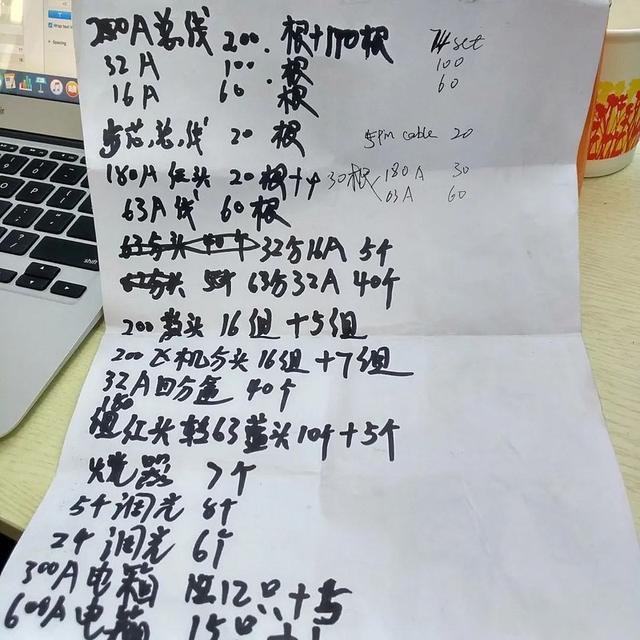 200A总线 200.根+170根 74 set
32A 100.根 100
16A 60.根 60
5芯总线 20根 5 Pin cable 20
180A红头 20根+ 30根 180A 30
63A线 60根 63A 60
32分16A 5个
63分32A 40个
200数头 16组+5组
200飞机分头16组+7组
32A四分 40个
180
红头转63蓝头10个+5个
7个
5个调光 8个
2个调光 6个
300A电箱 12只+5
600A电箱 15只+
shift